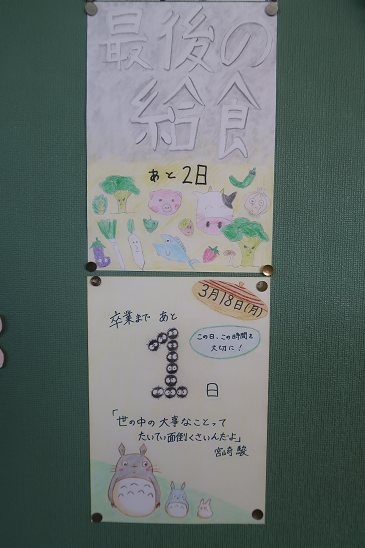 最後の
給食
あと2日
3月18日(月)
卒業まで あと
1
日
この日、この時間を
大切に!
「世の中の大事なことって
たいてい面倒くさいんだよ」
宮崎 駿